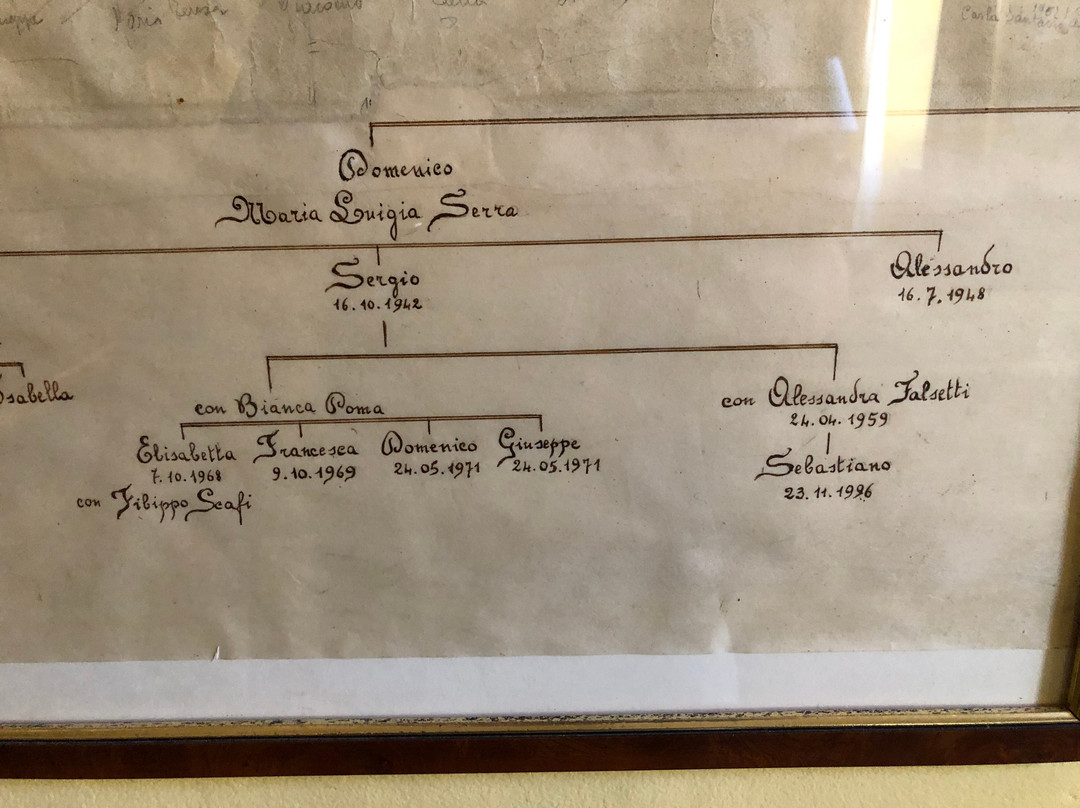 Maria Teresa Giacomo
Domenico
Maria Luigia Serra
Sergio
16.10.1942
Alessandro
16.7.1948
Isabella
con Bianca Poma
con Alessandra Falsetti
24.04.1959
Elisabetta
7.10.1968
con Filippo Scafi
Francesca
9.10.1969
Domenico
24.05.1971
Giuseppe
24.05.1971
Sebastiano
23.11.1996